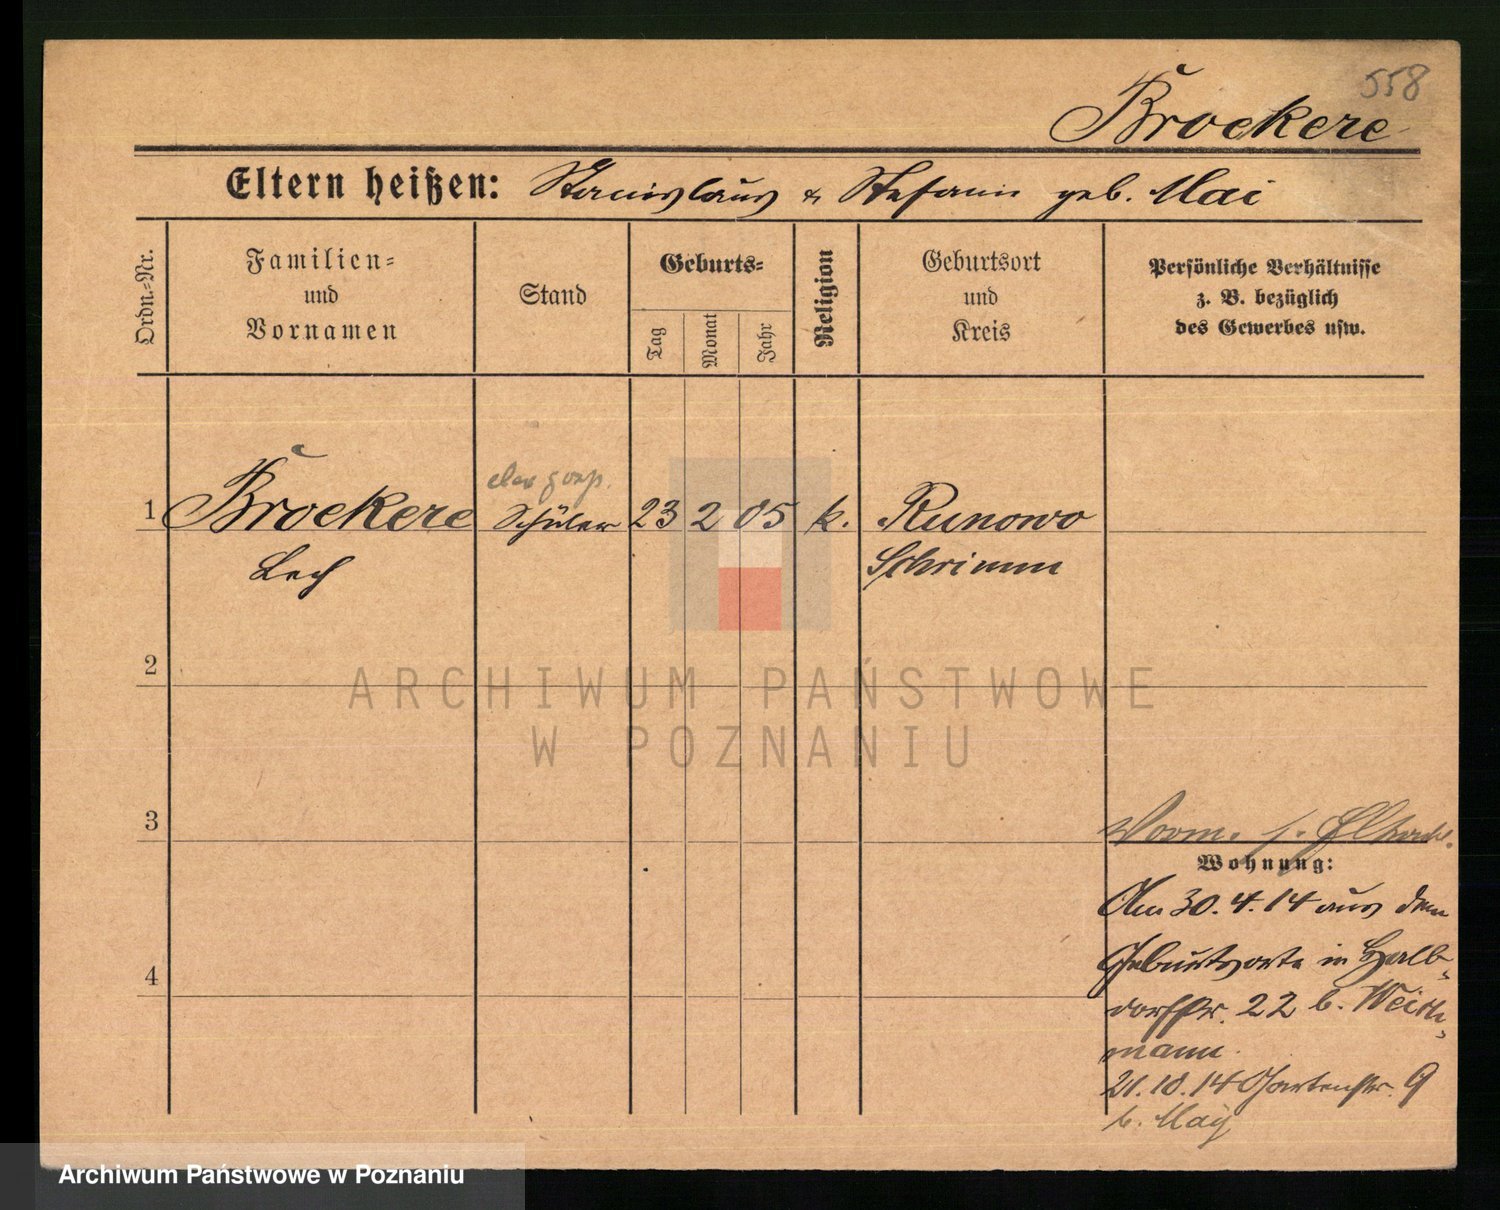 558
Broekere
Eltern heißen: Stanislaus & Stefanie geb. Mai
Ordn.-Nr.
Familien-
und
Vornamen
Stand
Geburts-
Tag
Monat
Jahr
Religion
Geburtsort
und
Kreis
Persönliche Verhältnisse
z. B. bezüglich
des Gewerbes usw.
1 Broekere Schüler 23 2 05 k. Runowo
Lech Schrimm
2
ARCHIWUM PAŃSTWOWE
W POZNANIU
3
Wohnung:
Am 30.4.14 aus dem
Geburtsorte in Halb-
dorfstr. 22 b. Weich-
mann.
21.10.14 Gartenstr. 9
b. May
4
Archiwum Państwowe w Poznaniu